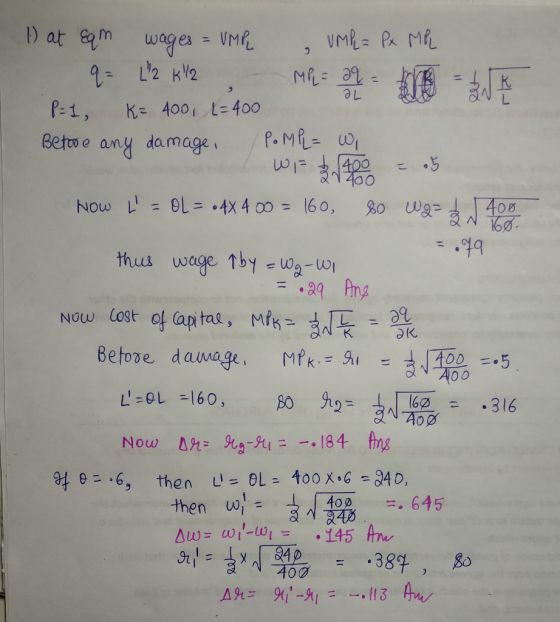 1) at Eqm wages = VMPL , VMPL = P× MPL
q = L^1/2 K^1/2 , MPL = ∂q/∂L = = 1/2 √(K/L)
P=1, K= 400, L=400
Before any damage, P·MPL = W1
W1 = 1/2 √(400/400) = .5
Now L' = θL = .4×400 = 160, so W2 = 1/2 √(400/160)
= .79
thus wage ↑ by = W2 - W1
= .29 Ans
Now cost of capital, MPK = 1/2 √(L/K) = ∂q/∂K
Before damage. MPK = r1 = 1/2 √(400/400) = .5
L' = θL = 160, so r2 = 1/2 √(160/400) = .316
Now Δr = r2 - r1 = -.184 Ans
If θ = .6, then L' = θL = 400 × .6 = 240,
then W1' = 1/2 √(400/240) = .645
ΔW = W1' - W1 = .145 An
r1' = 1/2 × √(240/400) = .387 , so
Δr = r1' - r1 = -.113 An